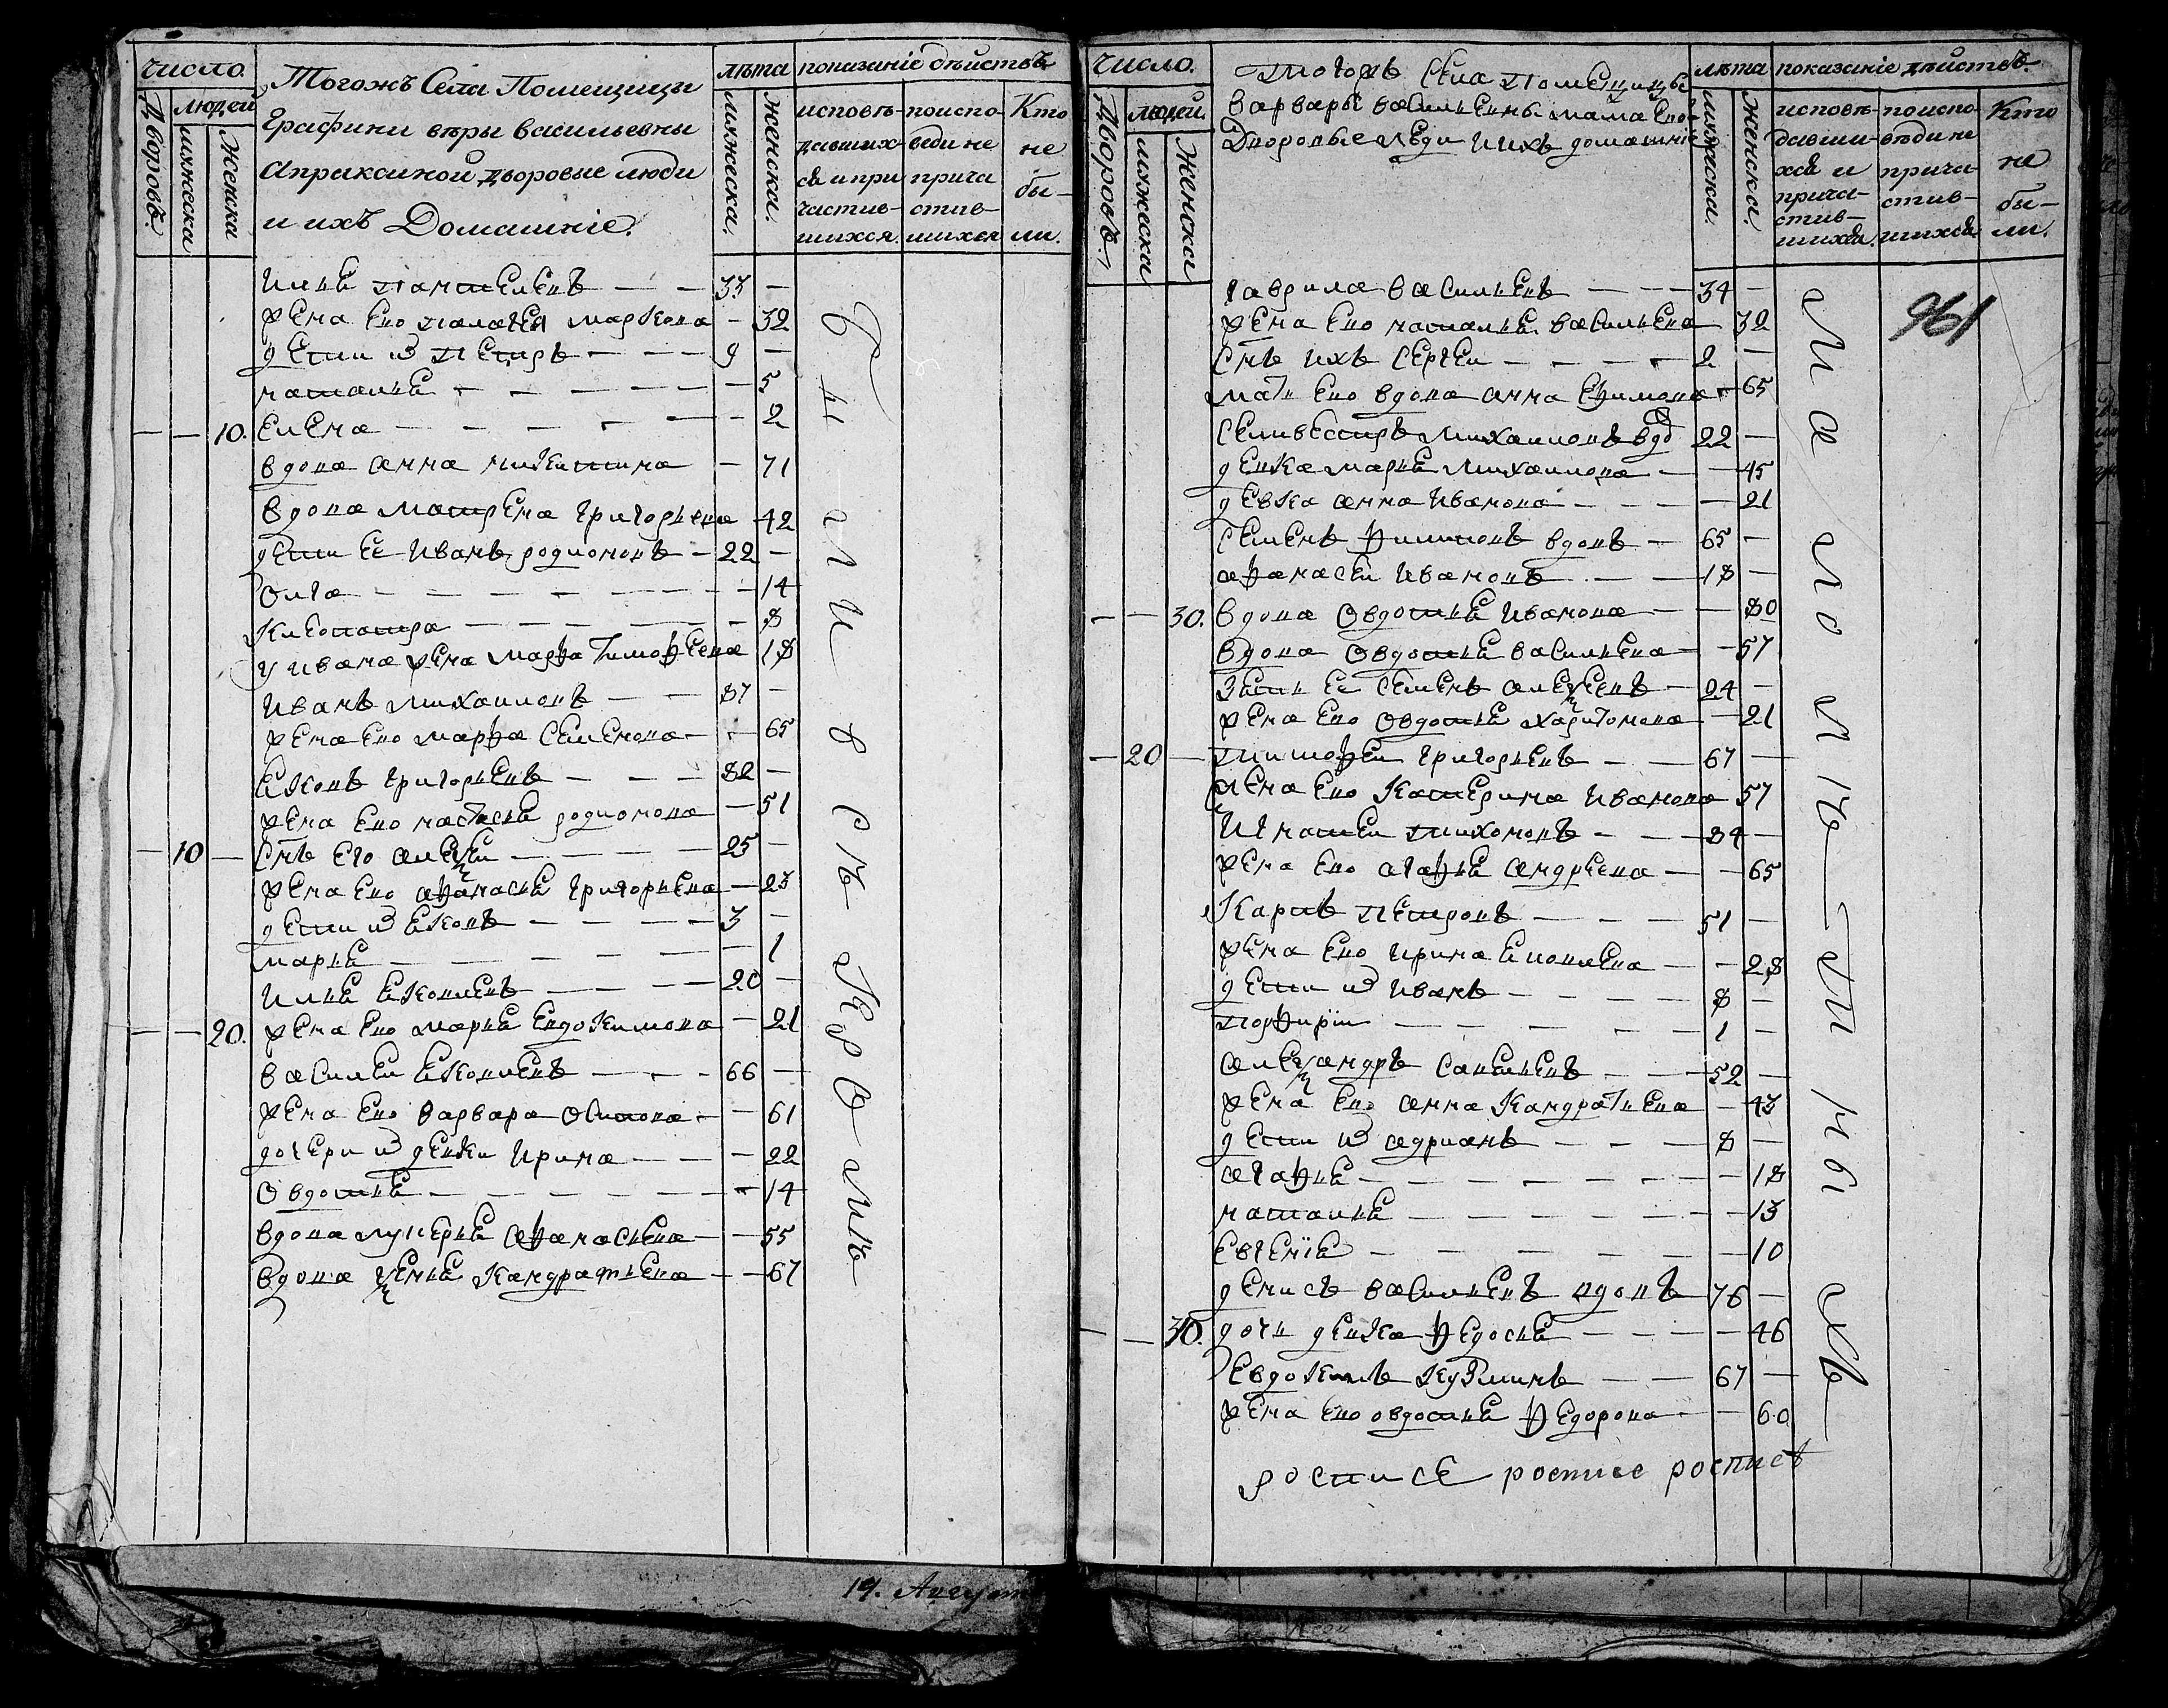 число.
людей
Дворовъ.
мужеска
Женска
Тогожъ Села Помещицы
Графини вѣры васильевны
Апраксиной дворовые люди
и ихъ Домашніе.
лѣта
мужеска.
Женска.
показаніе дѣйствъ
исповѣ-
давших-
ся и при
частив-
шихся.
поиспо-
веди не
прича
стив-
шихся
Кто
не
бы-
ли.
Илья Пантелевъ — — 33 —
жена Ево Палагея маркова — 32
дети их Петръ — — — 9 —
наталья — — — — — 5
— — 10. Елена — — — — — 2
вдова анна микитина — 71
вдова матрена григорьева 42
дети ее Иванъ родионовъ — 22 —
Олга — — — — — — 14
Клеопатра — — — — — 8
у ивана жена марфа Тимофеева 18
Иванъ михаиловъ — — 87 —
жена ево марфа Семенова — — 65
Яковъ григорьевъ — — — 82 —
жена ево настасья родионова — 51
— 10 — Снъ его алексеи — — — 25 —
жена ево афанасья григорьева — 23
дети их Яковъ — — — — 3 —
марья — — — — — 1
Илья Яковлевъ — — — — 20 —
— — 20. жена ево марья Евдокимова — 21
василеи Яковлевъ — — — 66 —
жена ево варвара осипова — — 61
дочери их девки Ирина — — — 22
Овдотья — — — — — — 14
вдова лукерья афанасьева — — 55
вдова ксенья Кандратьева — — 67
были у съ
14. Август
число.
людей.
Дворовъ.
мужеска
Женска
Тогожъ Села Помещицы
варвары васильевны
Дворовые люди и ихъ домашніе
лѣта
мужеска.
Женска.
показаніе дѣйствъ.
исповѣ-
давши-
хся и
прича-
стив-
шихся.
поиспо-
вѣди не
прича-
стив-
шихся.
Кто
не
бы-
ли.
961
гаврила васильевъ — — — 34 —
жена ево наталья васильева 32
Снъ ихъ Сергеи — — — — 2 —
мать ево вдова анна Ефимова — 65
Селивестръ михаиловъ вдо 22 —
девка марья михаилова — — 45
девка анна Иванова — — — 21
Семенъ филиповъ вдовъ — 65 —
афанасеи Ивановъ — — 18 —
— — 30. вдова Овдотья Иванова — — 80
вдова Овдотья васильева — — 57
Зять ее Семенъ алексеевъ — 24 —
жена ево Овдотья харитонова — 21
— 20 — Тимофеи григорьевъ — — 67 —
жена ево Катерина Иванова 57
Игнатеи Тихоновъ — — 84 —
жена ево агафья андреева — — 65
Карпъ Петровъ — — — 51 —
жена ево Ирина — — 28
дети их Иванъ — — — — 8 —
Порфирїи — — — — — 1 —
александръ Савельевъ — — 52 —
жена ево анна Кандратьева — 43
дети их адрианъ — — — 8 —
агафья — — — — — — 18
наталья — — — — — — 13
Евгенїя — — — — — — 10
денисъ васильевъ вдовъ — 76 —
— — 30. дочь девка федосья — — — 46
Евдокимъ Кузминъ — — 67 —
жена ево овдотья федорова — — 60
росписе роспись роспись